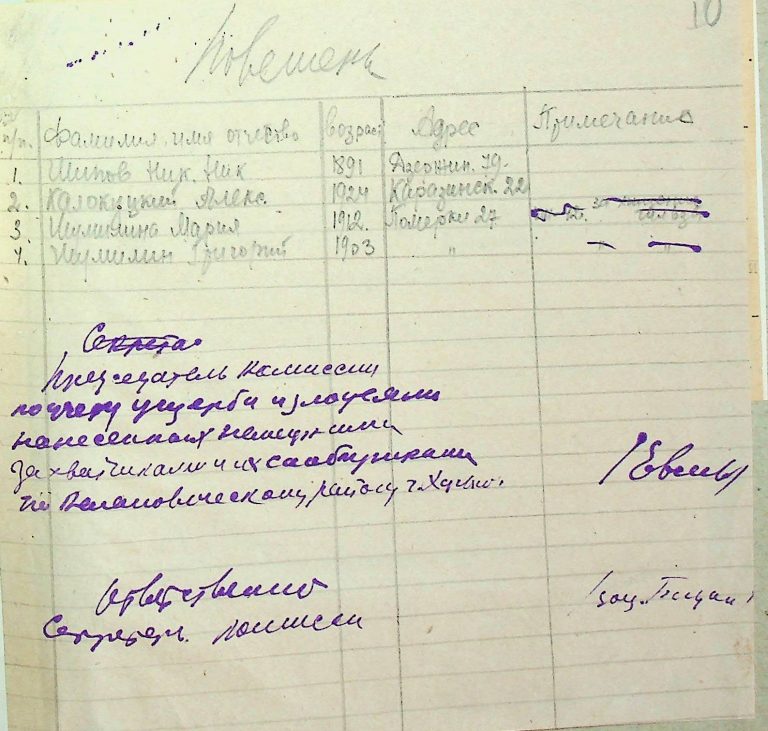 10
Повешены
№ п/п. Фамилия, имя отчество Возраст Адрес Примечание
1. Шипов Ник. Ник 1891 Дзержин. 79.
2. Калокуцкий Алекс. 1924 Каразинск. 22
3. Шумилина Мария 1912. Померки 27
4. Шумилин Григорий 1903 "
Секрета
Председатель комиссии
по учету ущерба и злодеяний
нанесенных немецкими
захватчиками и их сообщниками
по району г. Харьк.
Ответственный
Секретарь комиссии